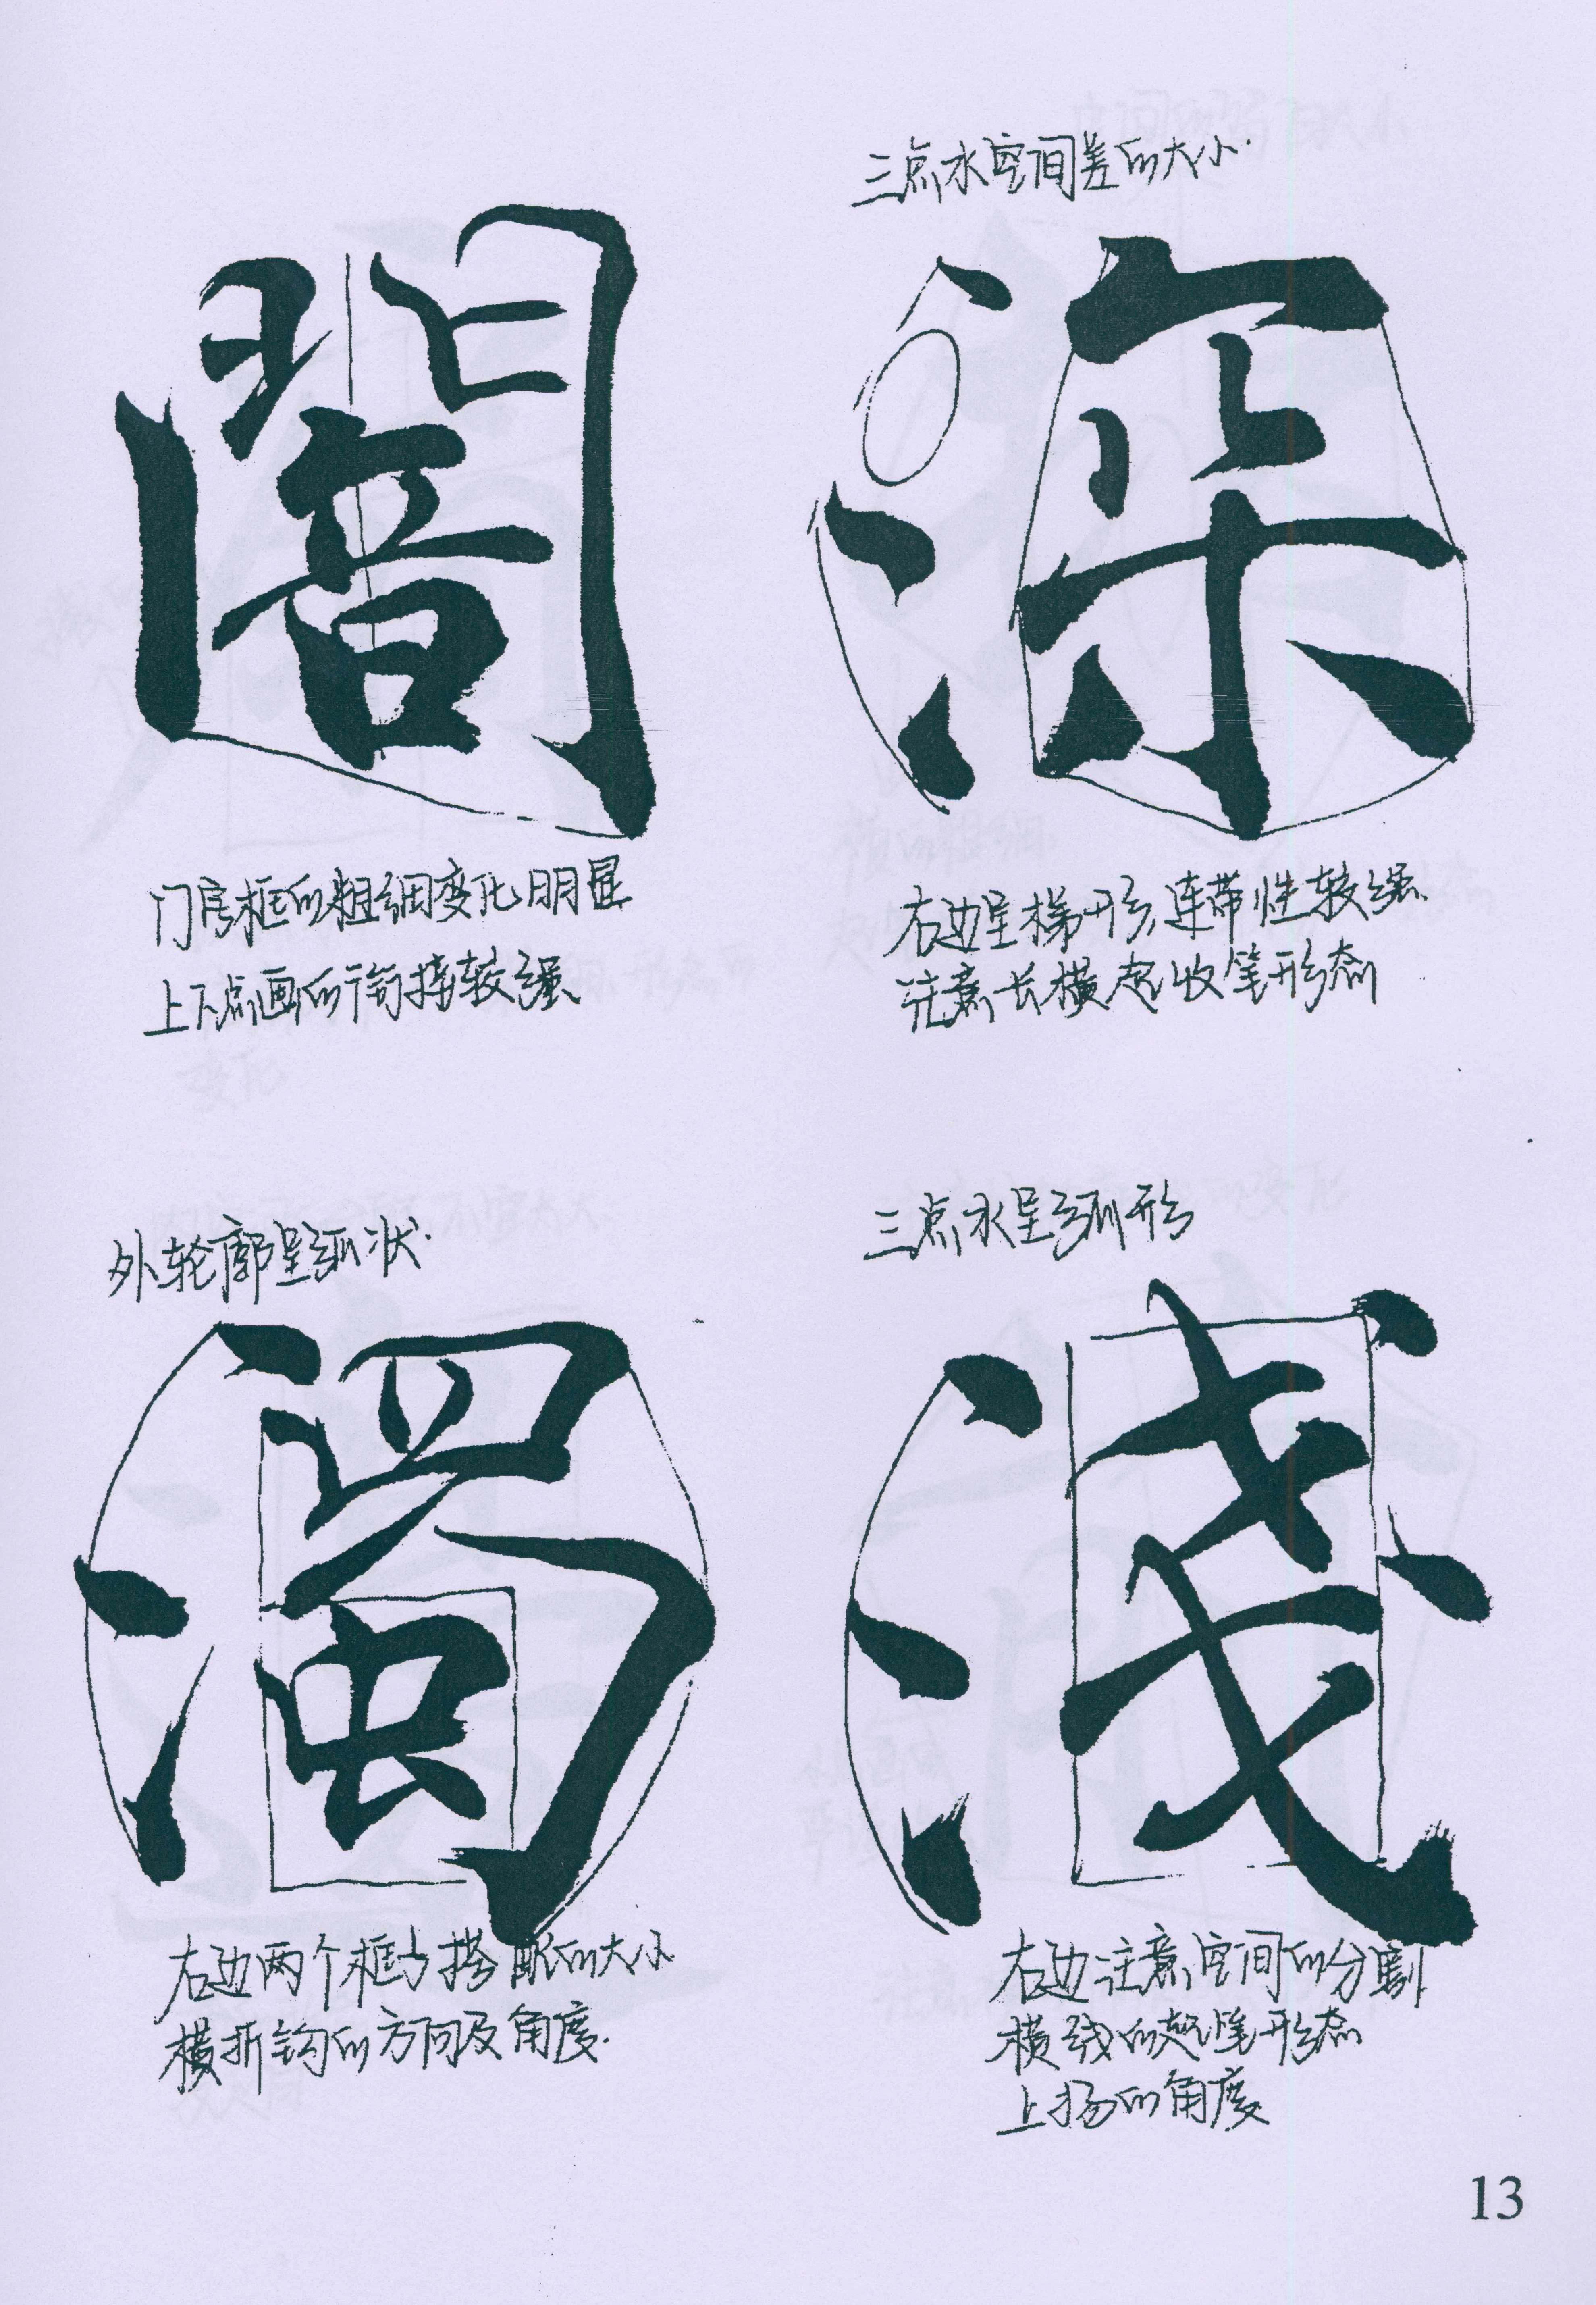 三点水空间差的大小.
闇
深
门房框的粗细变化明显
上下点画的衔接较强
右边呈梯形,连带性较强.
注意长横起收笔形态
外轮廓呈弧状.
三点水呈弧形
濁
淺
右边两个框与搭配的大小
横折钩的方向及角度.
右边注意空间的分割
横线的起笔形态
上扬的角度
13